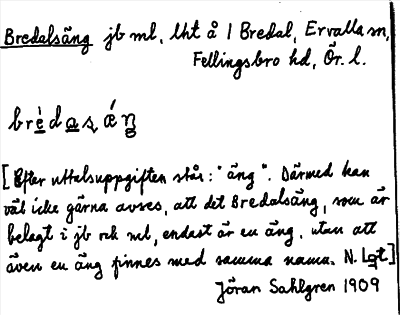 Bredalsäng jb ml, lht å 1 Bredal, Ervalla sn,
Fellingsbro hd, Ör. l.
brèdasǽŋ
[Efter uttalsuppgiften står: "äng". Därmed kan
väl icke gärna avses, att det Bredalsäng, som är
belagt i jb och ml, endast är en äng, utan att
även en äng finnes med samma namn. N. Lqt.]
Jöran Sahlgren 1909